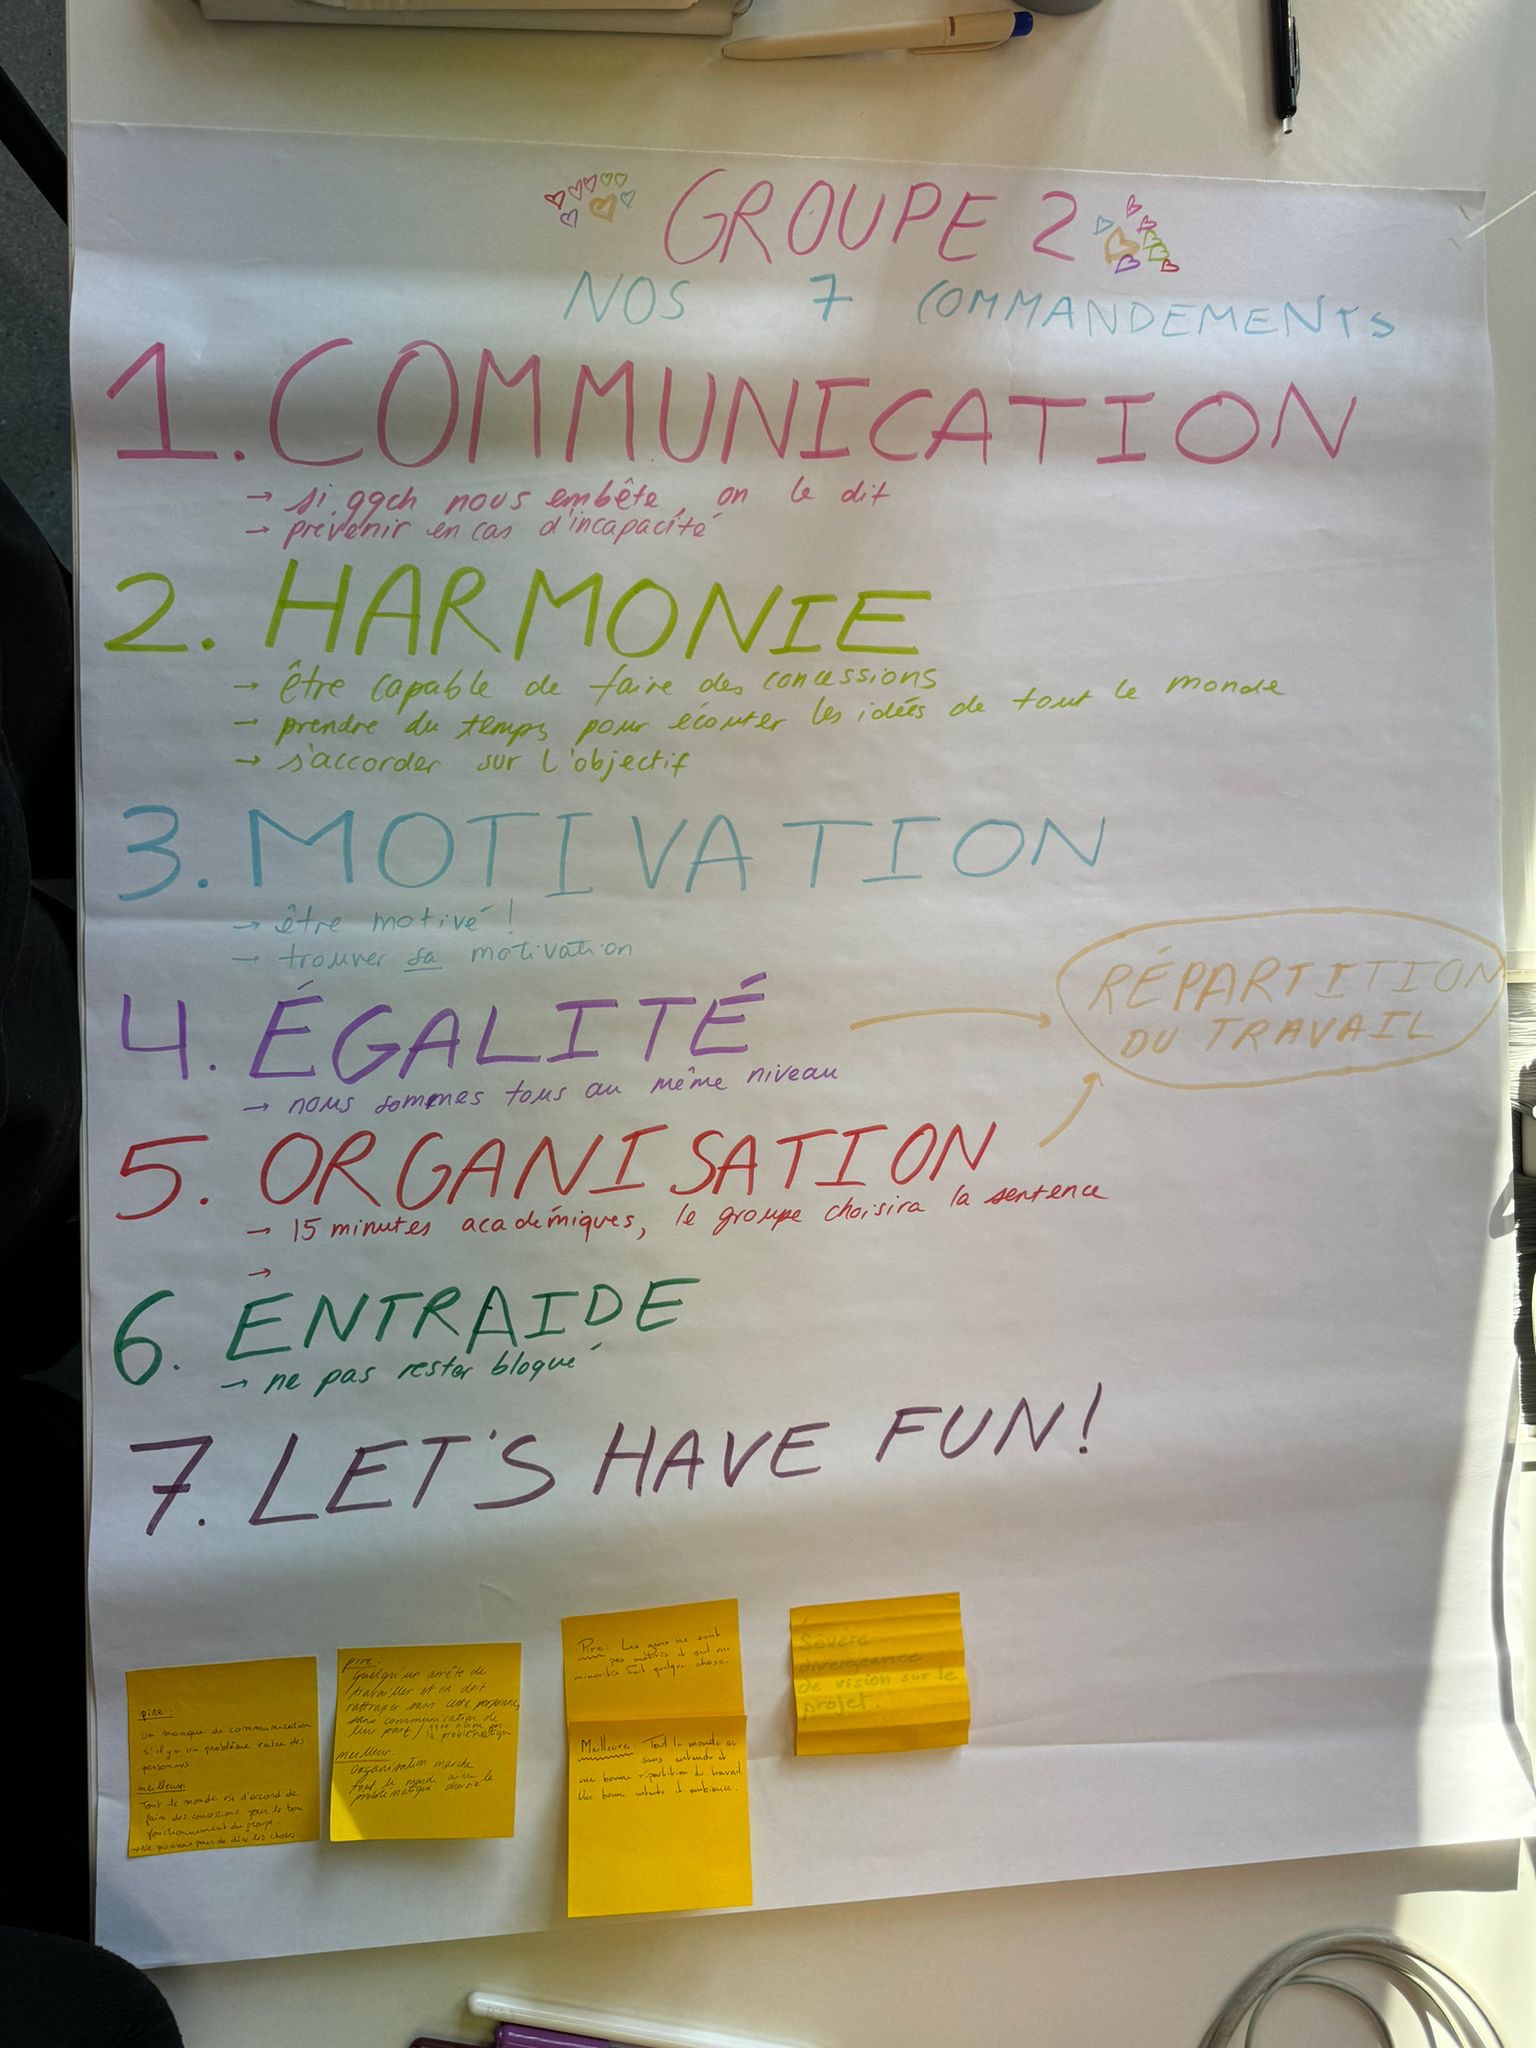 GROUPE 2
NOS 7 COMMANDEMENTS
1. COMMUNICATION
→ si qqch nous embête, on le dit
→ prévenir en cas d'incapacité
2. HARMONIE
→ être capable de faire des concessions
→ prendre du temps pour écouter les idées de tout le monde
→ s'accorder sur l'objectif
3. MOTIVATION
→ être motivé !
→ trouver sa motivation
4. ÉGALITÉ
→ nous sommes tous au même niveau
RÉPARTITION
DU TRAVAIL
5. ORGANISATION
→ 15 minutes académiques, le groupe choisira la sentence
→
6. ENTRAIDE
→ ne pas rester bloqué
7. LET'S HAVE FUN!
pire :
un manque de communication
s'il y a un problème entre des
personnes
meilleur:
Tout le monde est d'accord de
faire des concessions pour le bon
fonctionnement du groupe.
→ Ne pas avoir peur de dire les choses.
pire:
Quelqu'un arrête de
travailler et on doit
rattraper sans cette personne,
sans communication de
leur part /
la problématique
meilleur:
organisation marche
tout le monde
problématique derrière
Pire: Les gens ne sont
pas motivés et seul une
minorité fait quelque chose.
Meilleure: Tout le monde se
une bonne répartition du travail
Une bonne entente et ambiance.
Sévère
divergeance
de vision sur le
projet.